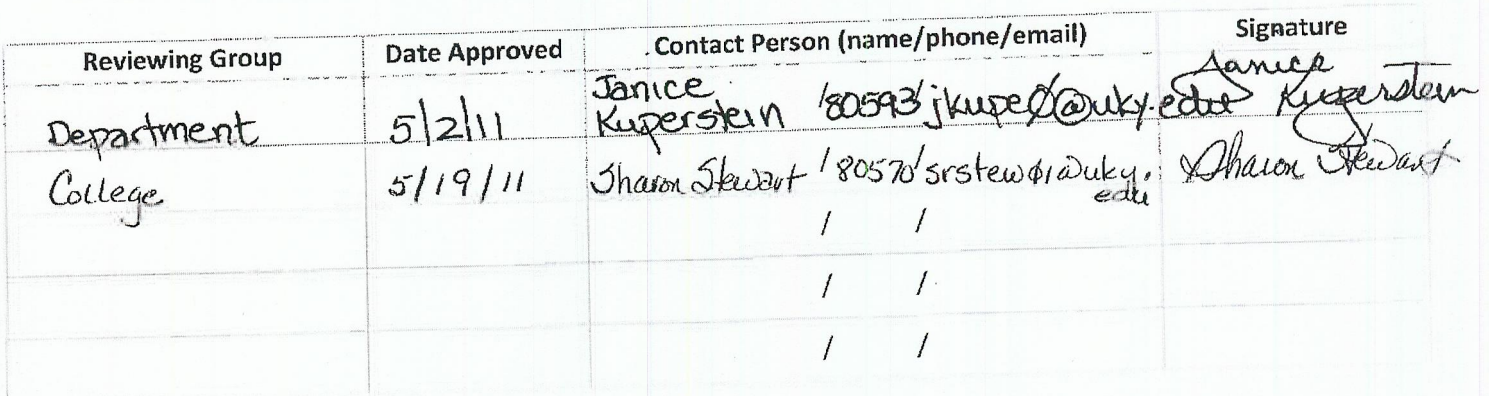 Reviewing Group Date Approved Contact Person (name/phone/email) Signature
Department 5/2/11 Janice Kuperstein /80593/ jkupe0@uky.edu Janice Kuperstein
College 5/19/11 Sharon Stewart /80570/ srstew01@uky.edu Sharon Stewart
/ /
/ /
/ /